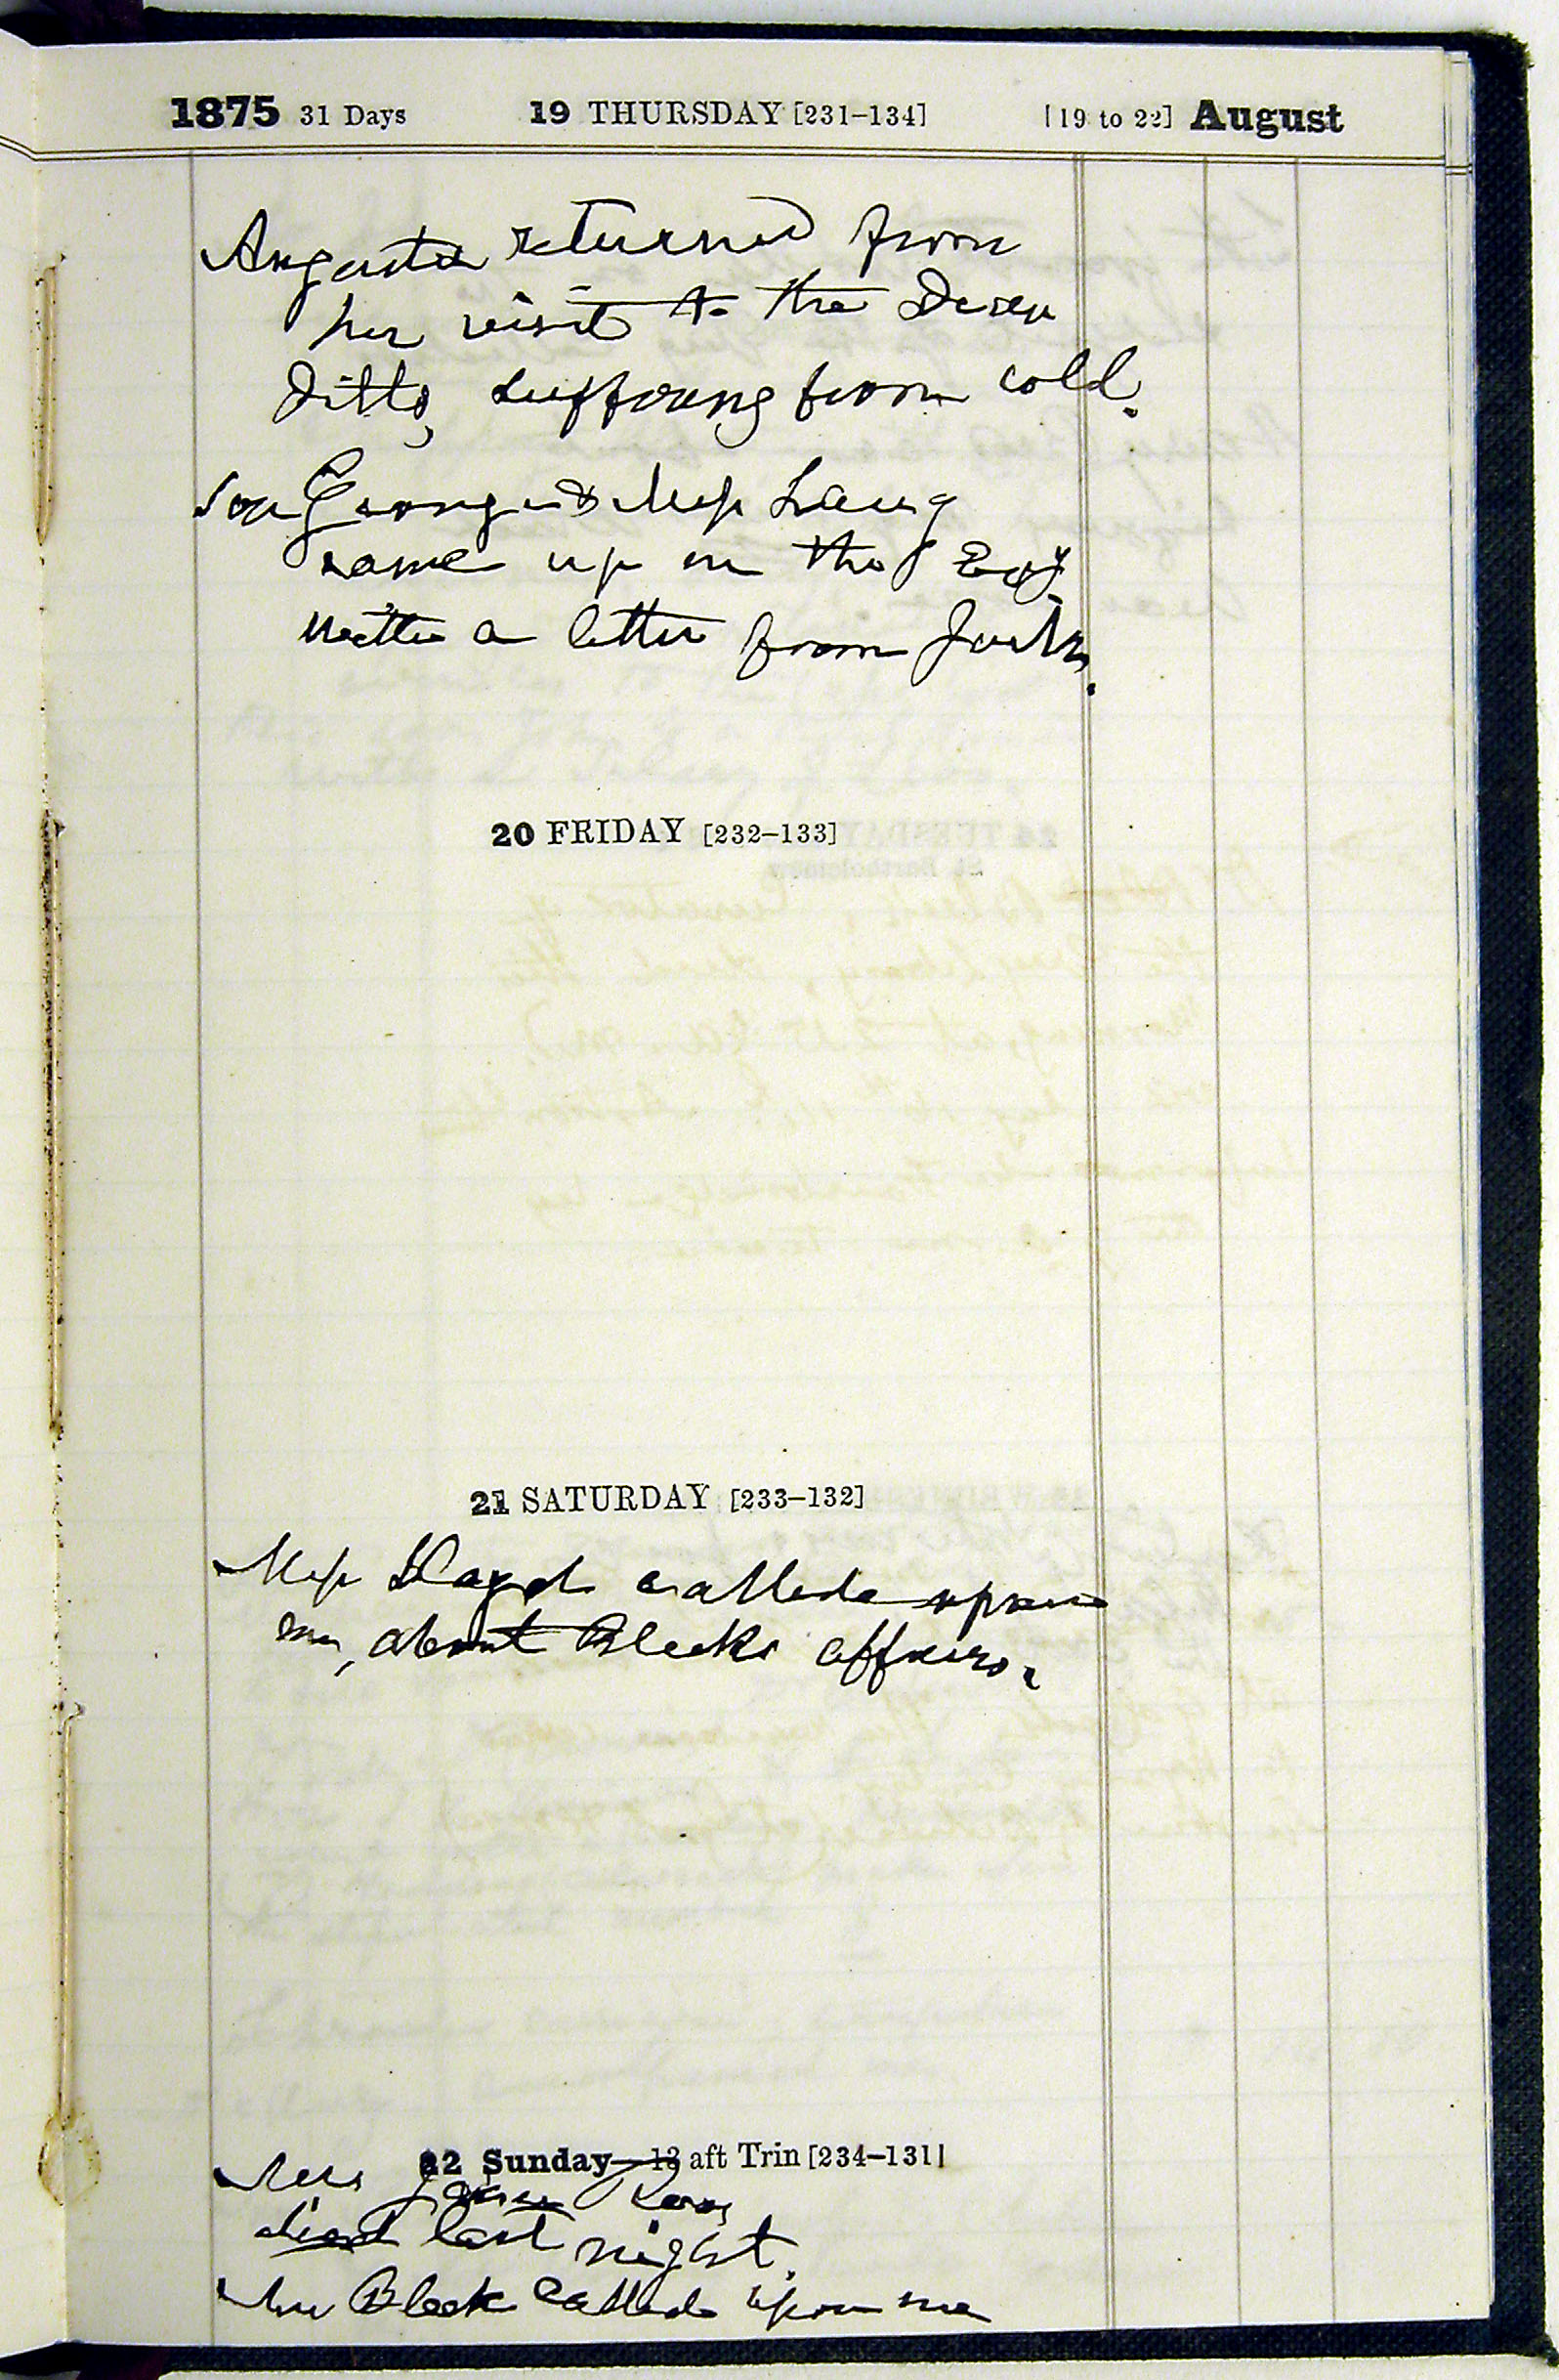 1875 31 Days 19 THURSDAY [231–134] [19 to 22] August
Augusta returned from
her visit to the
Ditto, suffering from cold.
Son George & Miss Laing
came up in the Evg.
a letter from
20 FRIDAY [232–133]
21 SATURDAY [233–132]
Miss Lloyd called upon
me, about Bleeks affairs.
22 Sunday—13 aft Trin [234–131]
Mrs Ross
died last night.
Mrs Bleek called upon me